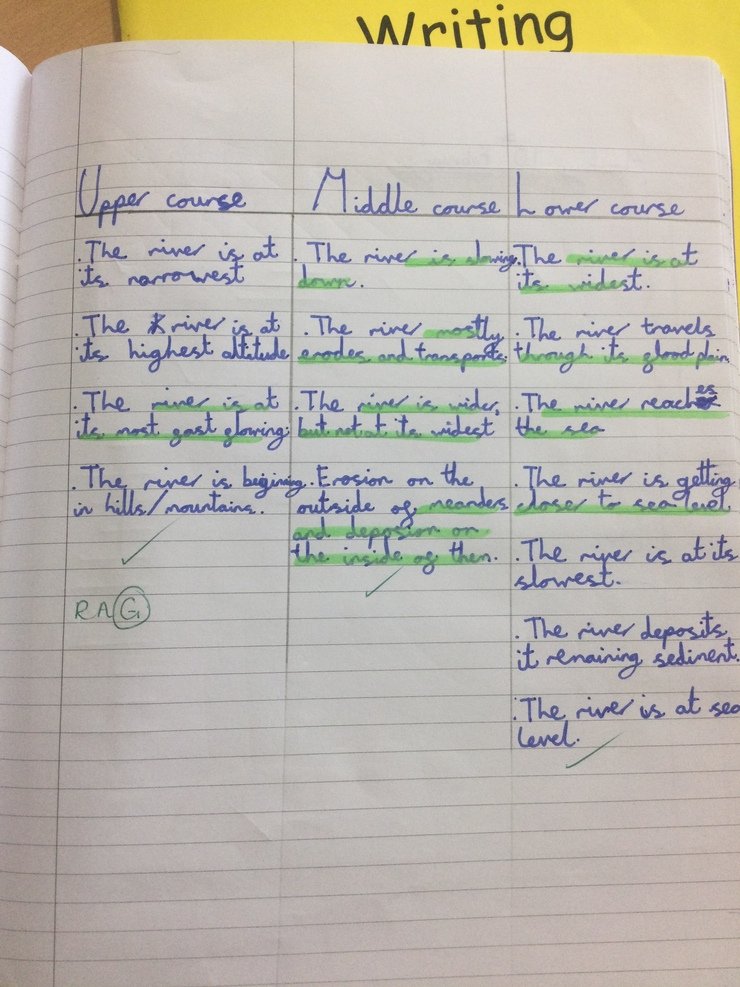 Writing
Upper course
. The river is at
its narrowest
. The river is at
its highest altitude
. The river is at
its most fast flowing
. The river is begining
in hills/mountains.
RAG
Middle course
. The river is slowing
down.
. The river mostly
erodes and transports.
. The river is wider,
but not at its widest
. Erosion on the
outside of meanders
and deposion on
the inside of then.
Lower course
. The river is at
its widest.
. The river travels
through its flood plain
. The river reaches
the sea
. The river is getting
closer to sea level
. The river is at its
slowest.
. The river deposits
it remaining sediment.
. The river is at sea
level.